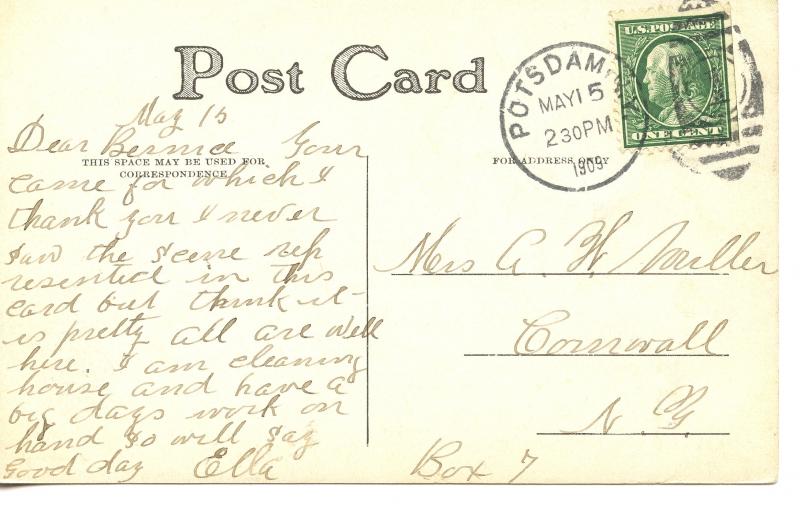 Post Card
POTSDAM
MAY 15
2 30 PM
1909
U.S. POSTAGE
ONE CENT
May 15
Dear Bernice Your
THIS SPACE MAY BE USED FOR
CORRESPONDENCE
FOR ADDRESS ONLY
came for which I
thank you I never
saw the scene rep
resented in this
card but think it
is pretty all are well
here. I am cleaning
house and have a
big days work on
hand so will say
Good day Ella
Mrs A. W. Miller
Cornwall
N. Y.
Box 7